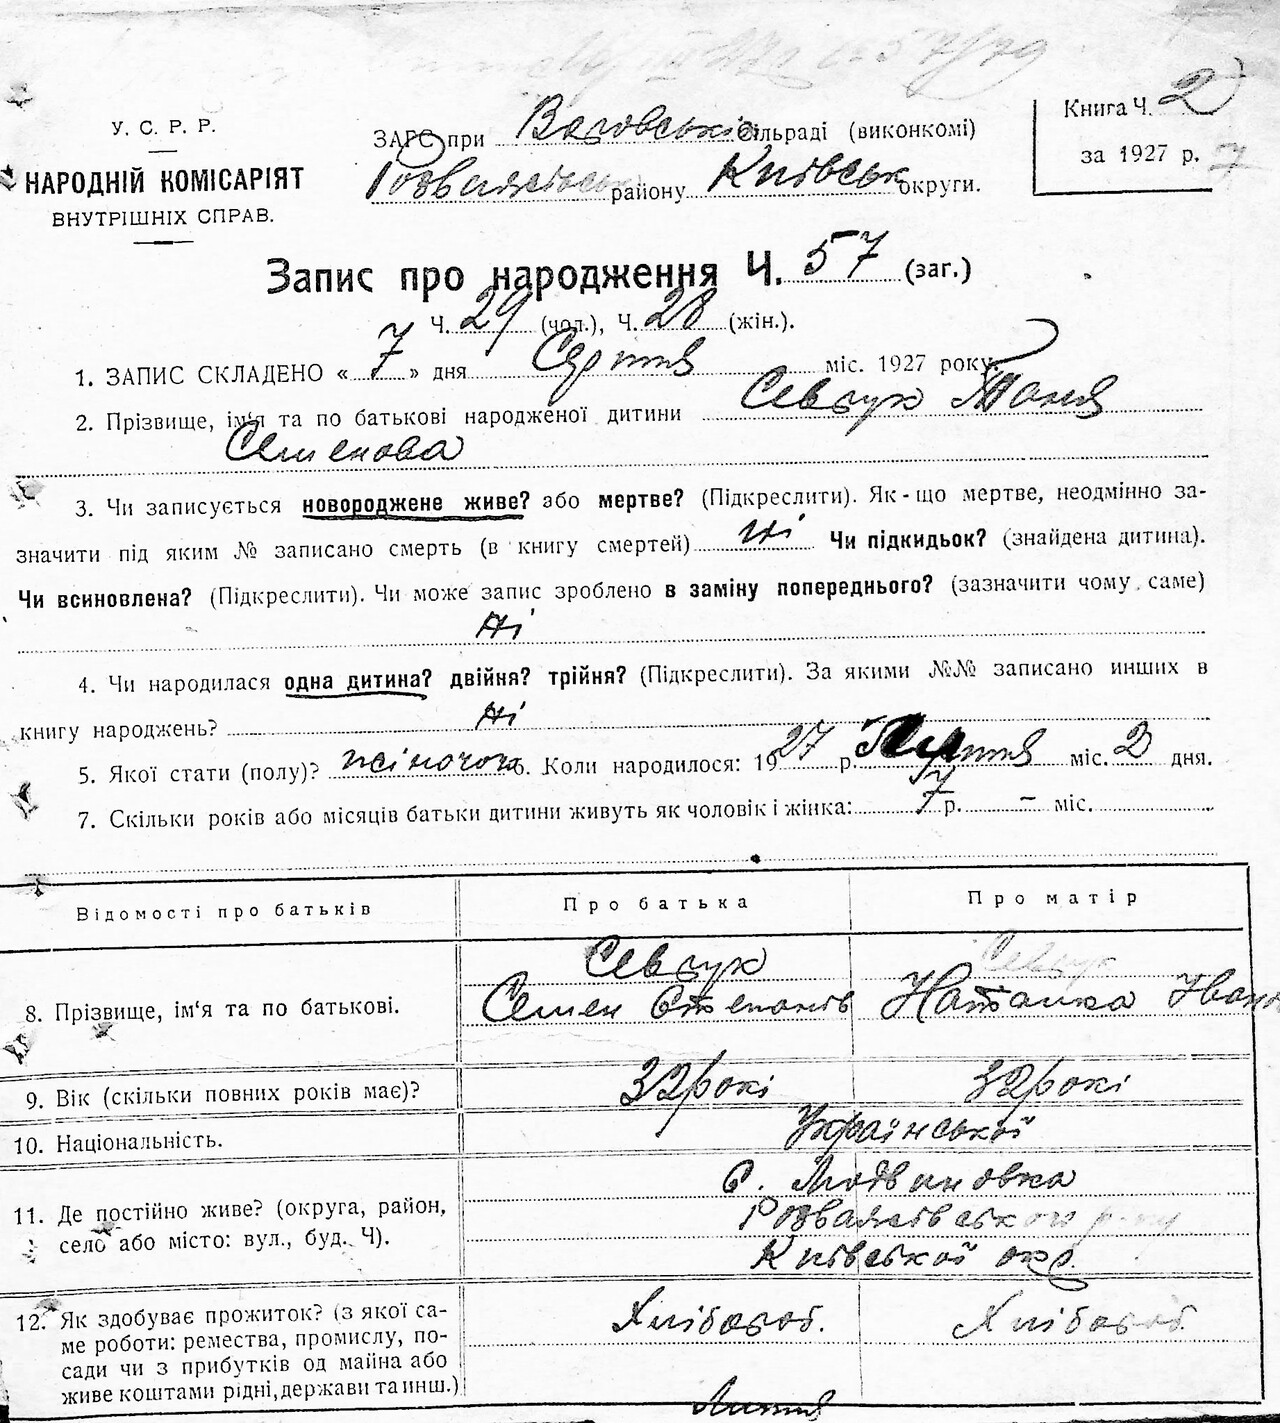 Книга Ч. 2
за 1927 р.
У. С. Р. Р.
НАРОДНІЙ КОМІСАРІЯТ
ВНУТРІШНІХ СПРАВ.
ЗАГС при сільраді (виконкомі)
Розважівськ району Київськ округи.
Запис про народження Ч. 57 (заг.)
Ч. 29 (чол.), Ч. 28 (жін.).
1. ЗАПИС СКЛАДЕНО « 7 » дня Серпня міс. 1927 року.
2. Прізвище, ім'я та по батькові народженої дитини Севрук Таня
Семенова
3. Чи записується новороджене живе? або мертве? (Підкреслити). Як-що мертве, неодмінно за-
значити під яким № записано смерть (в книгу смертей) ні Чи підкидьок? (знайдена дитина).
Чи всиновлена? (Підкреслити). Чи може запис зроблено в заміну попереднього? (зазначити чому саме)
Ні
4. Чи народилася одна дитина? двійня? трійня? (Підкреслити). За якими №№ записано инших в
книгу народжень? Ні
5. Якої стати (полу)? жіночої 6. Коли народилося: 1927 р. міс. 2 дня.
7. Скільки років або місяців батьки дитини живуть як чоловік і жінка: 7 р. – міс.
Відомості про батьків Про батька Про матір
8. Прізвище, ім'я та по батькові. Севрук Севрук
Семен Степанів Наталка Іван
9. Вік (скільки повних років має)? 32 рокі 32 рокі
10. Національність. Української
11. Де постійно живе? (округа, район,
село або місто: вул., буд. Ч).
Розважівського р-ну
Київської окр.
12. Як здобуває прожиток? (з якої са-
ме роботи: ремества, промислу, по-
сади чи з прибутків од майна або
живе коштами рідні, держави та инш.) Хлібороб. Хлібороб
Липня